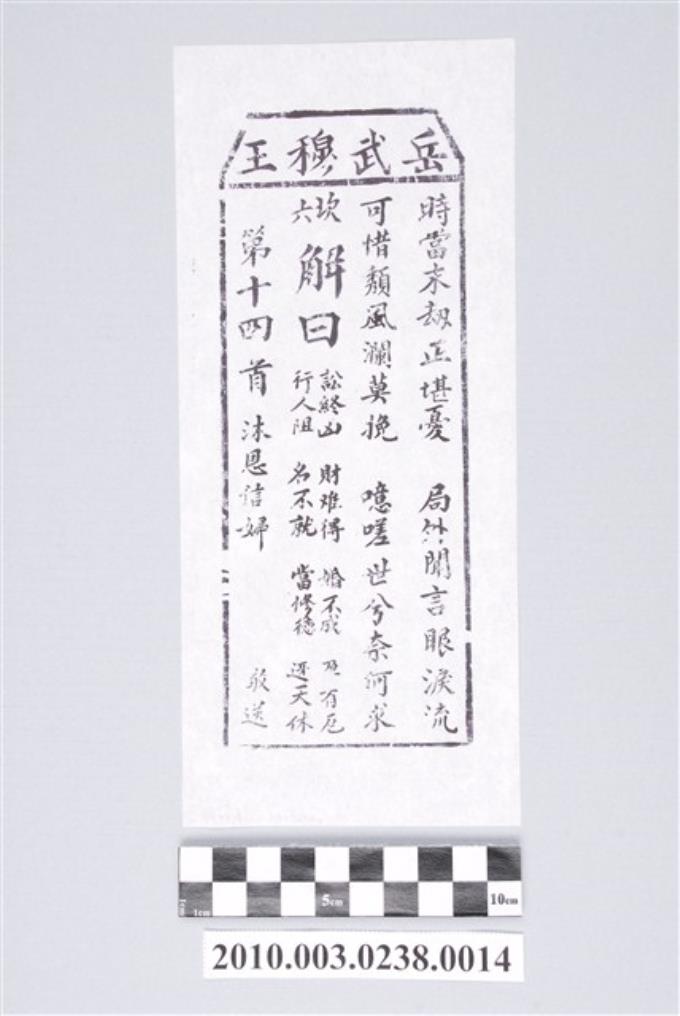 岳武穆王
時當末劫正堪憂 局外聞言眼淚流
可惜頹風瀾莫挽 噫嗟世兮奈何求
坎六
解曰
訟終凶 財难得 婚不成 有厄
行人阻 名不就 當修德 迓天休
第十四首 沐恩信婦 敬送
1cm
5cm
10cm
2010.003.0238.0014